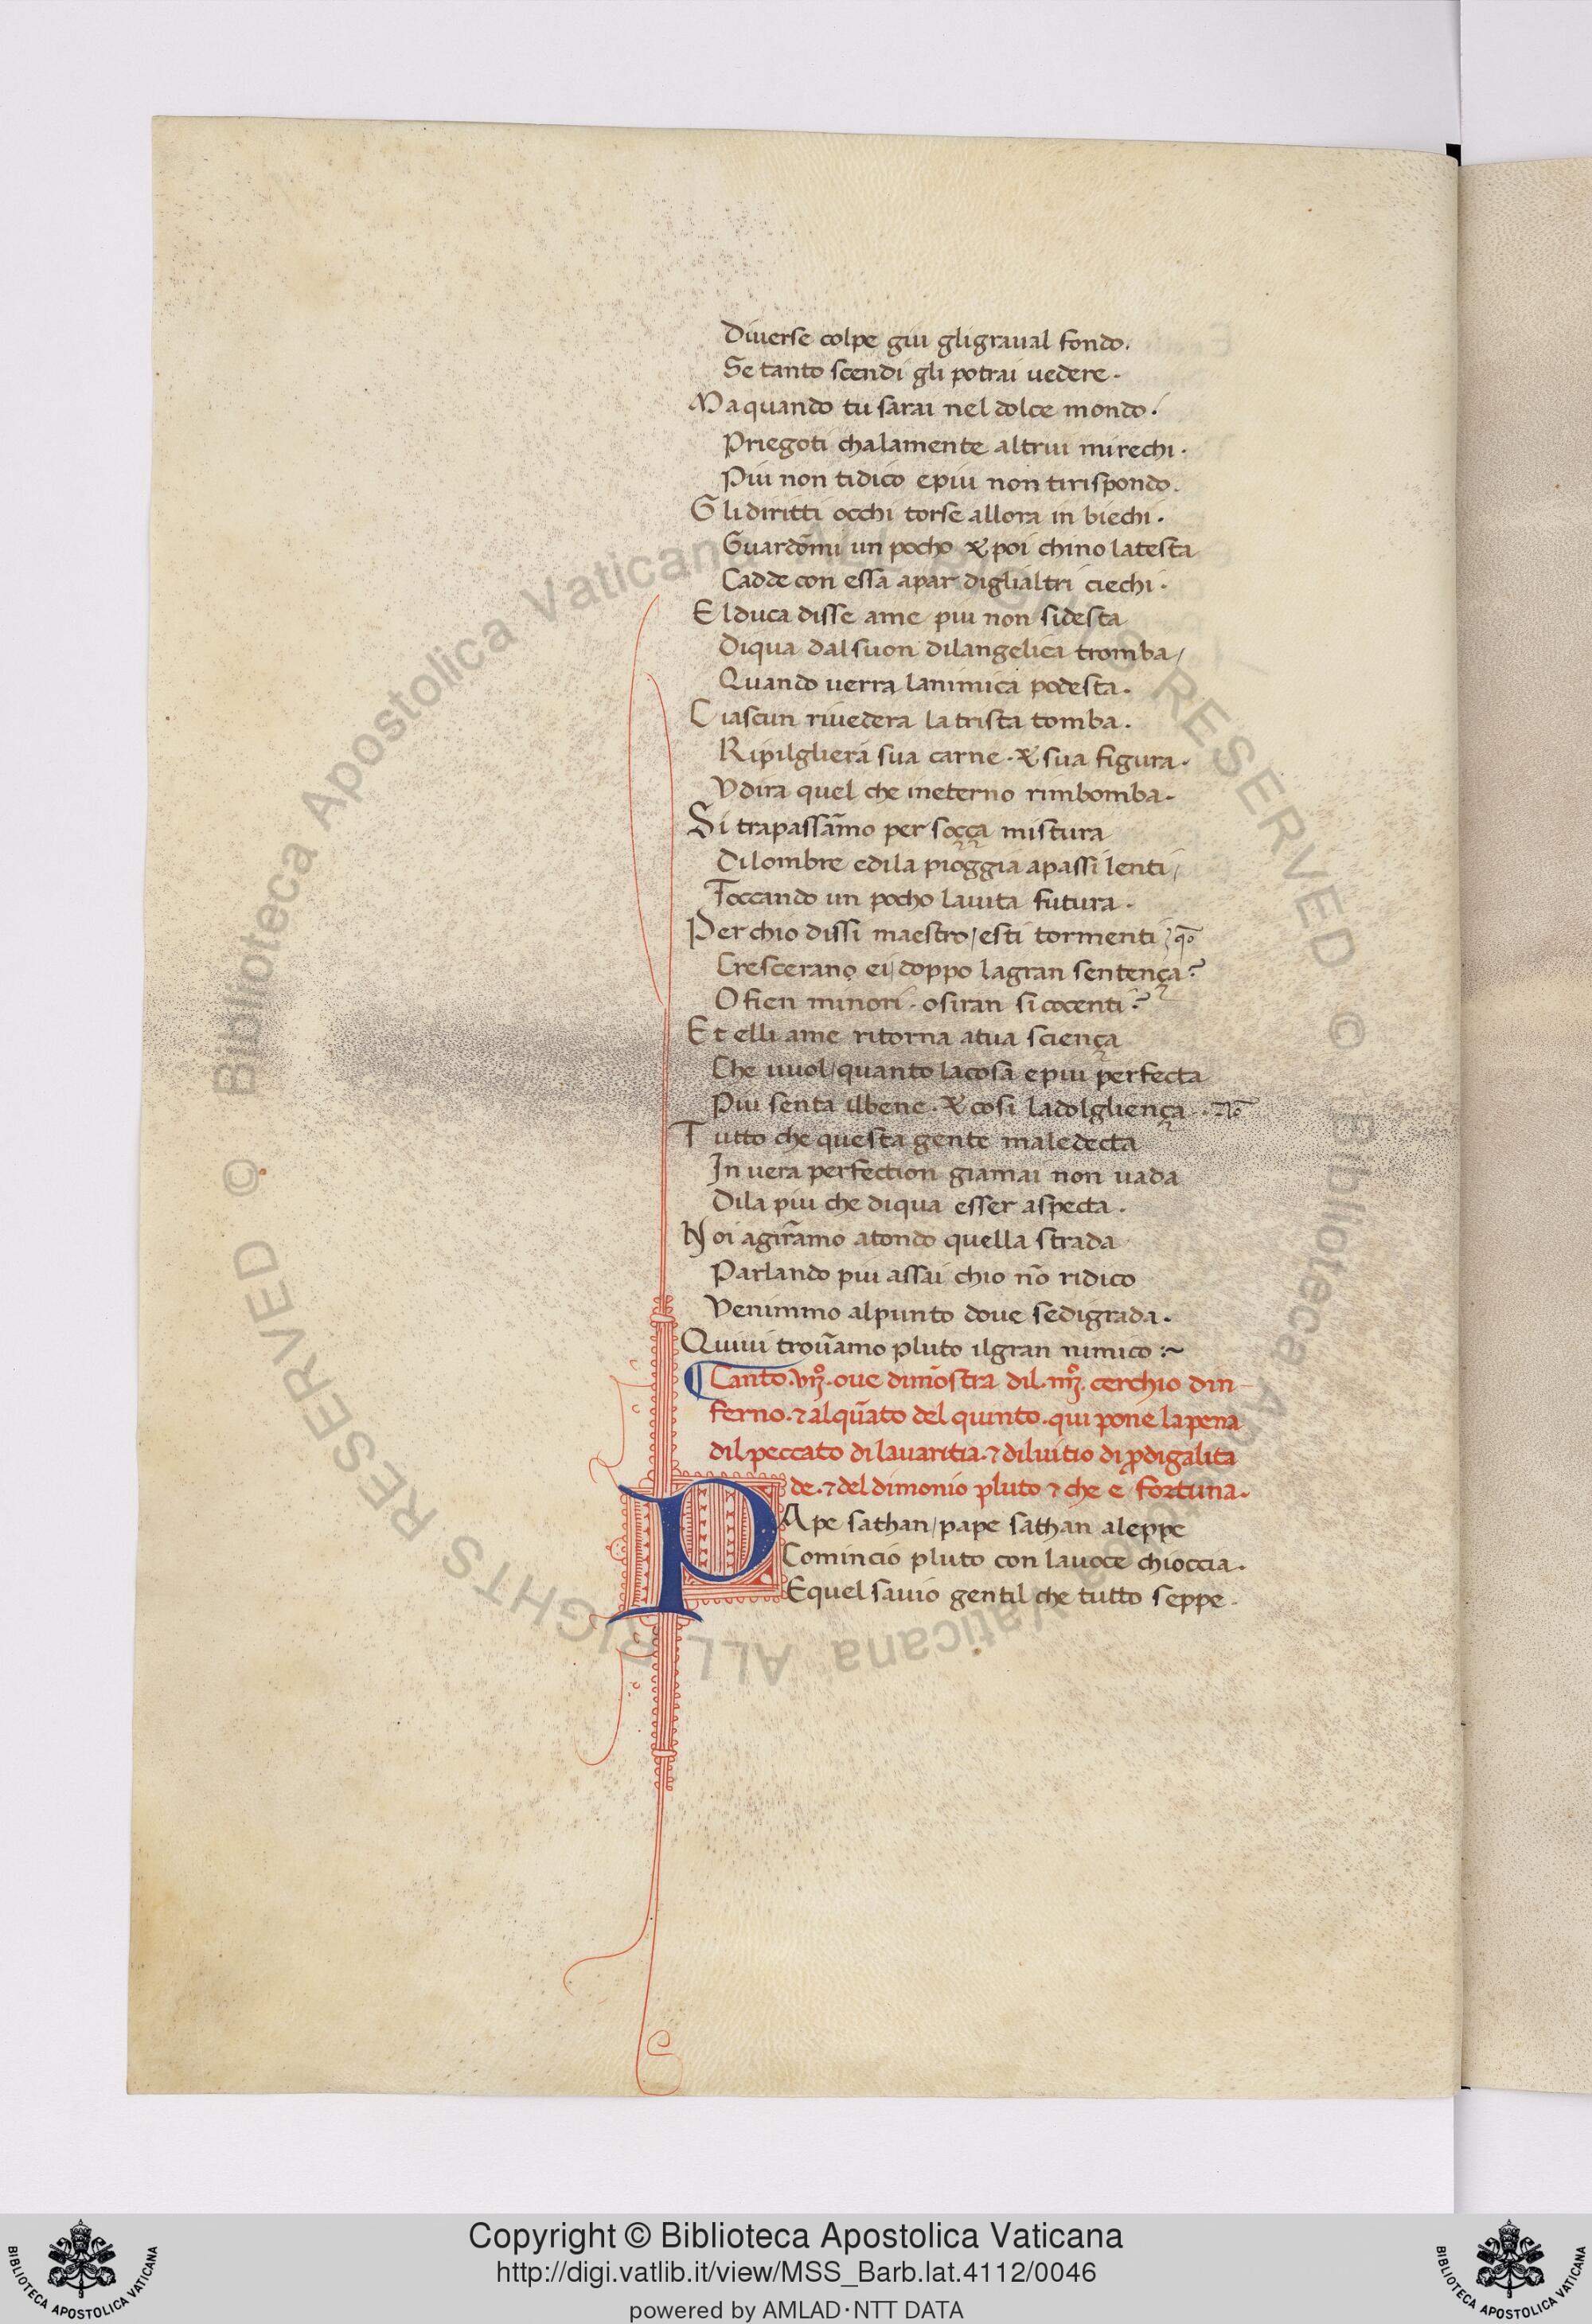 Diuerse colpe giu gligraual fondo.
Se tanto scendi gli potrai uedere.
Ma quando tu sarai nel dolce mondo.
Priegoti chalamente altrui mirechi.
Piu non tidico epiu non tirispondo.
Gli diritti occhi torse allora in biechi.
Guardōmi un pocho & poi chino latesta
Cadde con essa apar diglialtri ciechi.
El duca disse ame piu non sidesta
Diqua dalsuon dilangelica tromba/
Quando uerra lanimica podesta.
Ciascun riuedera la trista tomba.
Ripilgliera sua carne. & sua figura.
Vdira quel che ineterno rimbomba.
Si trapassāmo per soçça mistura
Dilombre edila pioggia apassi lenti/
Toccando un pocho lauita futura.
Perchio dissi maestro/esti tormenti/ qō
Crescerano ei/doppo lagran sentença?
O fien minori. osiran si cocenti?
Et elli ame ritorna atua sciença
Che uuol/quanto lacosa epiu perfecta
Piu senta ilbene. & cosi ladolgliença. Nō
Tutto che questa gente maledecta
In uera perfection giamai non uada
Dila piu che diqua esser aspecta.
Noi agirāmo atondo quella strada
Parlando piu assai chio nō ridico
Venimmo alpunto doue sedigrada.
Quiui trouāmo pluto ilgran nimico:~
¶ Canto. vijº. oue dimōstra dil. iiijº. cerchio din
ferno. ⁊ alqūato del quinto. qui pone lapena
dil peccato di lauaritia. ⁊ diluitio di ꝓdigalita
de. ⁊ del dimonio pluto ⁊ che e fortuna.
PApe sathan/pape sathan aleppe
Comincio pluto con lauoce chioccia.
Equel sauio gentil che tutto seppe.
© Biblioteca Apostolica Vaticana ALL RIGHTS RESERVED © Biblioteca Apostolica Vaticana ALL RIGHTS RESERVED
Copyright © Biblioteca Apostolica Vaticana
http://digi.vatlib.it/view/MSS_Barb.lat.4112/0046
powered by AMLAD·NTT DATA
BIBLIOTECA APOSTOLICA VATICANA
BIBLIOTECA APOSTOLICA VATICANA